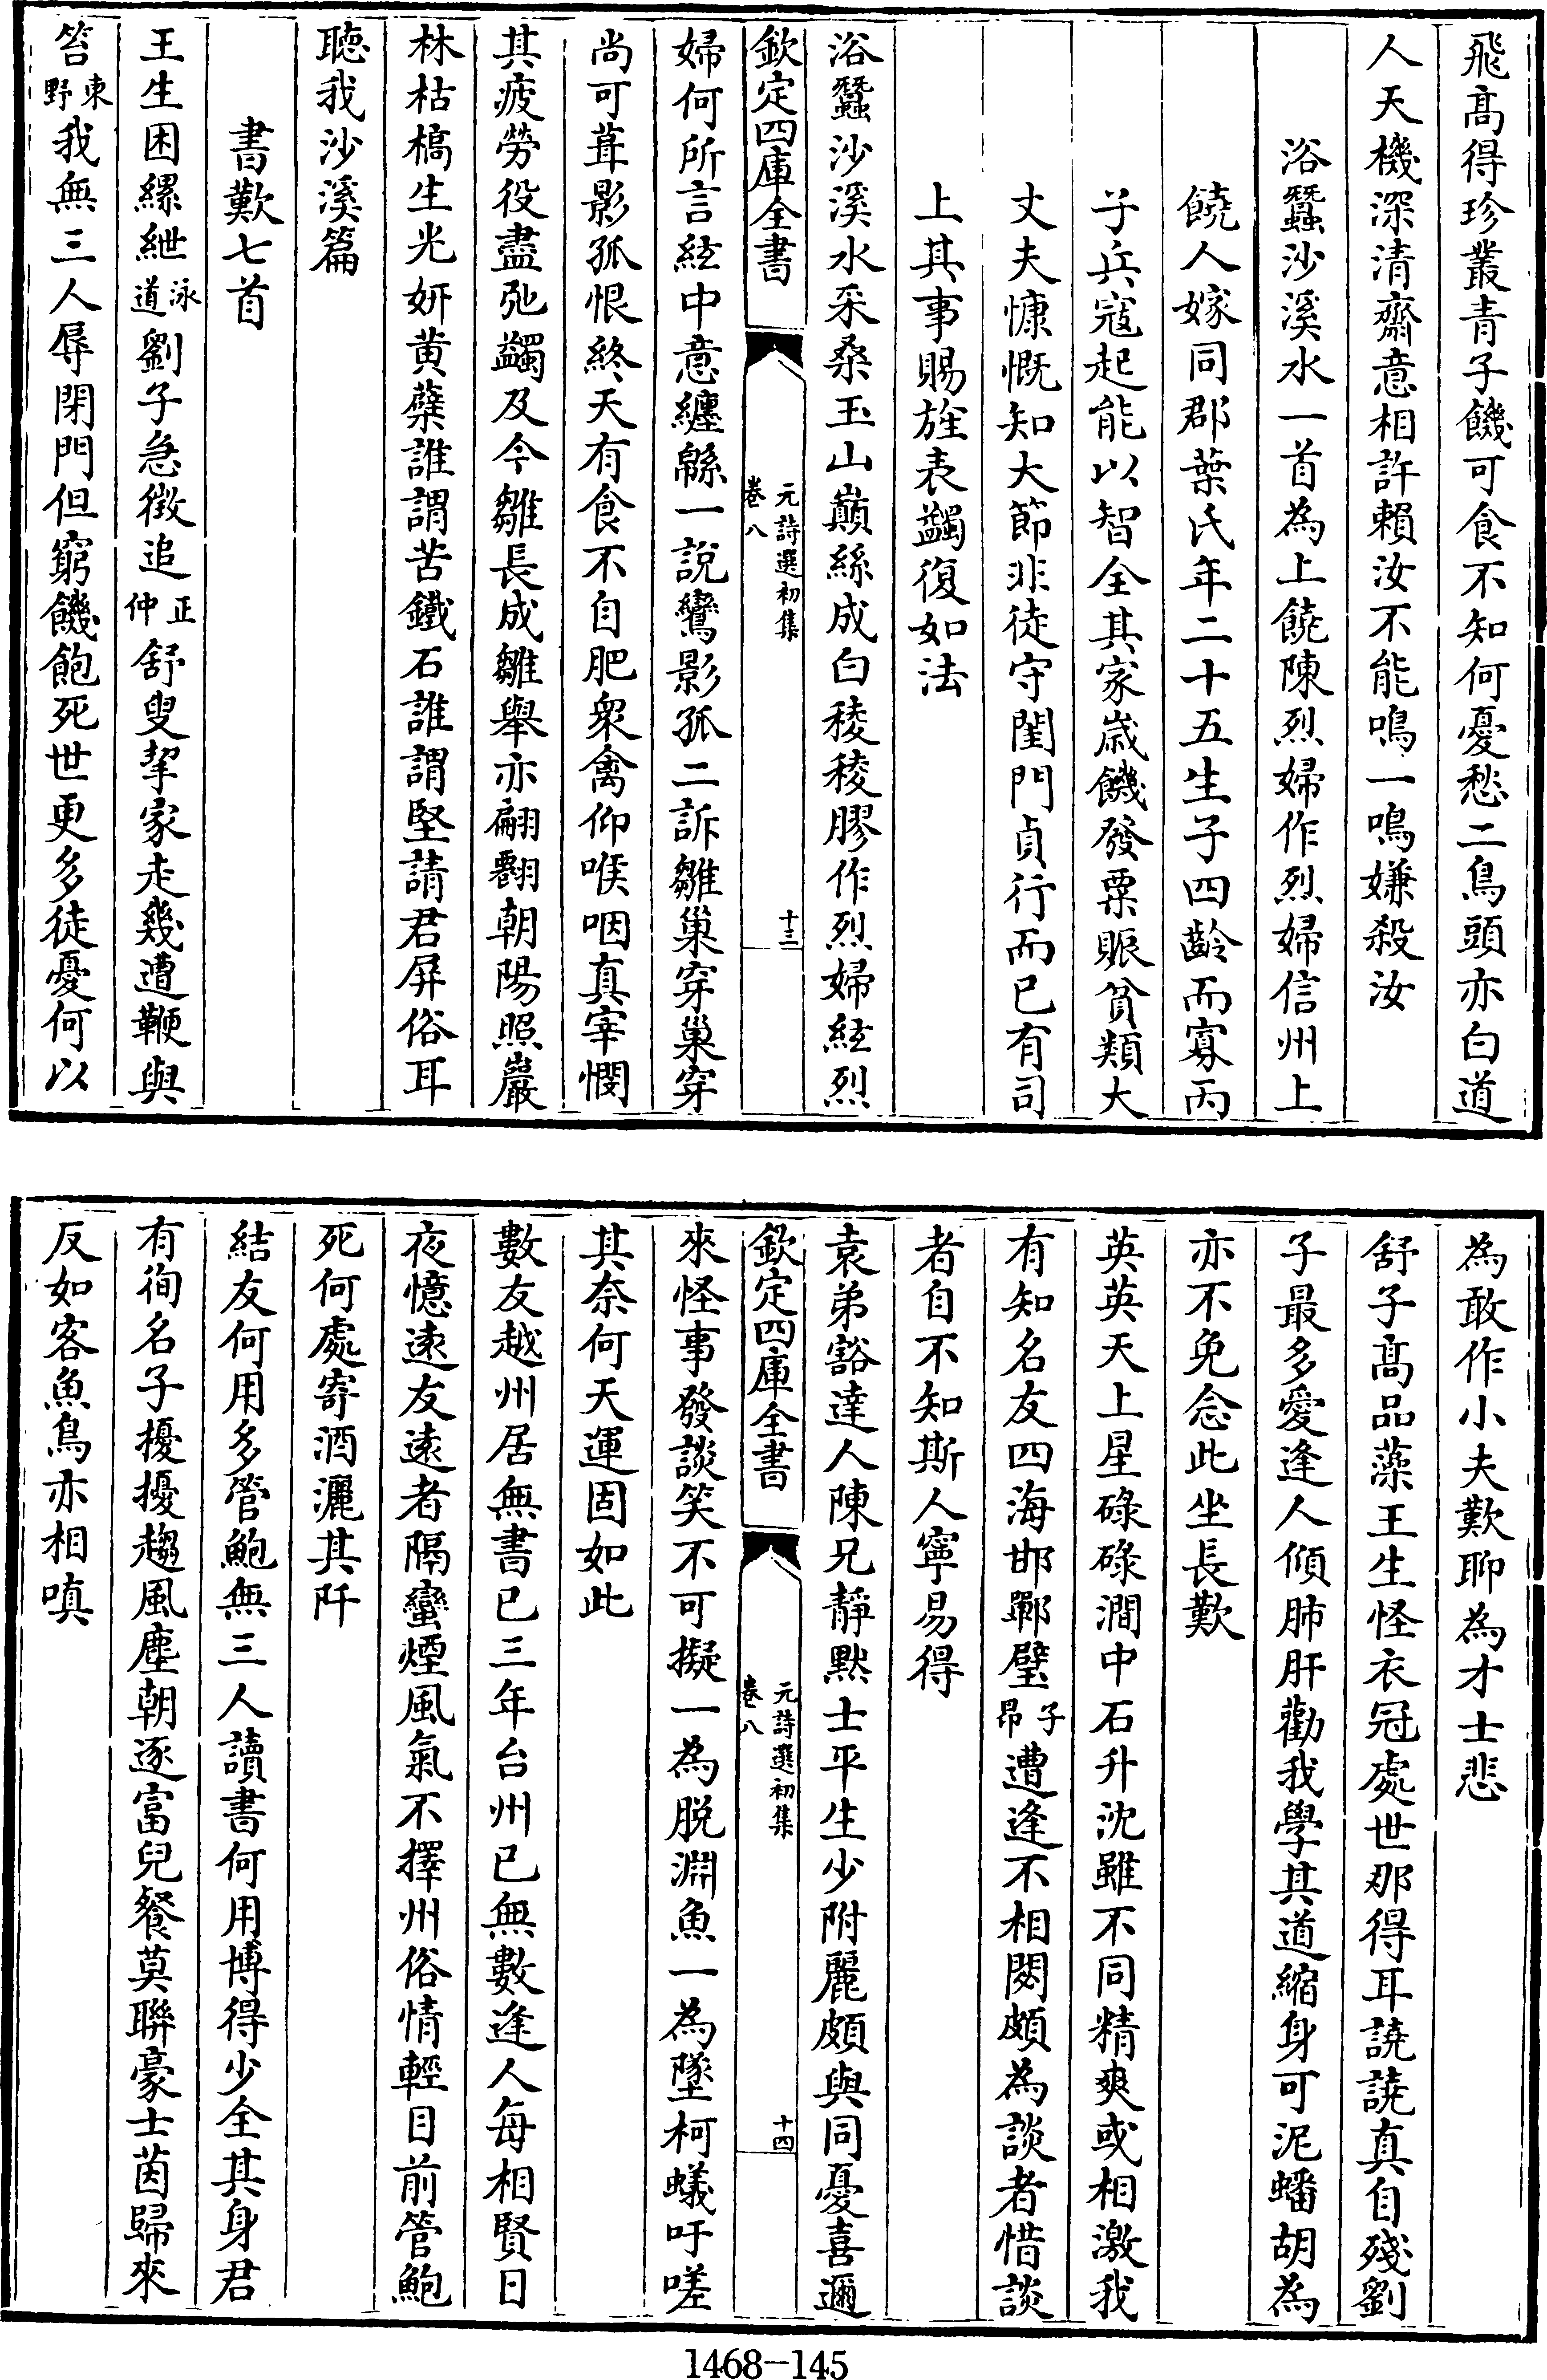 飛髙得珍叢青子饑可食不知何憂愁二鳥頭亦白道
人天機深清齋意相許賴汝不能鳴一鳴嫌殺汝
浴蠶沙溪水一首為上饒陳烈婦作烈婦信州上
饒人嫁同郡葉氏年二十五生子四齡而寡丙
子兵寇起能以智全其家嵗饑發粟賑貧類大
丈夫慷慨知大節非徒守閨門貞行而已有司
上其事賜旌表蠲復如法
浴蠶沙溪水采桑玉山巔絲成白稜稜膠作烈婦絃烈
欽定四庫全書
元詩選初集
卷八
十三
婦何所言絃中意纏緜一說鸞影孤二訴雛巢穿巢穿
尚可葺影孤恨終天有食不自肥衆禽仰喉咽真宰憫
其疲勞役盡弛蠲及今雛長成雛舉亦翩翾朝陽照巖
林枯槁生光妍黄蘗誰謂苦鐵石誰謂堅請君屏俗耳
聽我沙溪篇
書歎七首
王生困縲紲泳道劉子急徴追正仲舒叟挈家走幾遭鞭與
笞東野我無三人辱閉門但窮饑飽死世更多徒憂何以
為敢作小夫歎聊為才士悲
舒子髙品藻王生怪衣冠處世那得耳譊譊真自殘劉
子最多愛逢人傾肺肝勸我學其道縮身可泥蟠胡為
亦不免念此坐長歎
英英天上星碌碌澗中石升沈雖不同精爽或相激我
有知名友四海邯鄲璧子昻遭逢不相閡頗為談者惜談
者自不知斯人寧易得
袁弟豁達人陳兄靜黙士平生少附麗頗與同憂喜邇
欽定四庫全書
元詩選初集
卷八
十四
來怪事發談笑不可擬一為脱淵魚一為墜柯蟻吁嗟
其奈何天運固如此
數友越州居無書已三年台州已無數逢人每相賢日
夜憶逺友逺者隔蠻煙風氣不擇州俗情輕目前管鮑
死何處寄酒灑其阡
結友何用多管鮑無三人讀書何用博得少全其身君
有徇名子擾擾趨風塵朝逐富兒餐莫聯豪士茵歸來
反如客魚鳥亦相嗔
1468-145